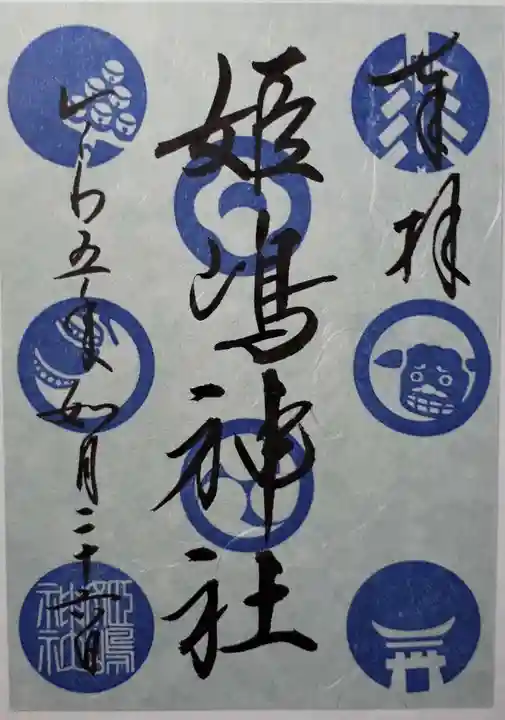 奉拝
姫嶋神社
令和五年如月二十六日
姫嶋神社